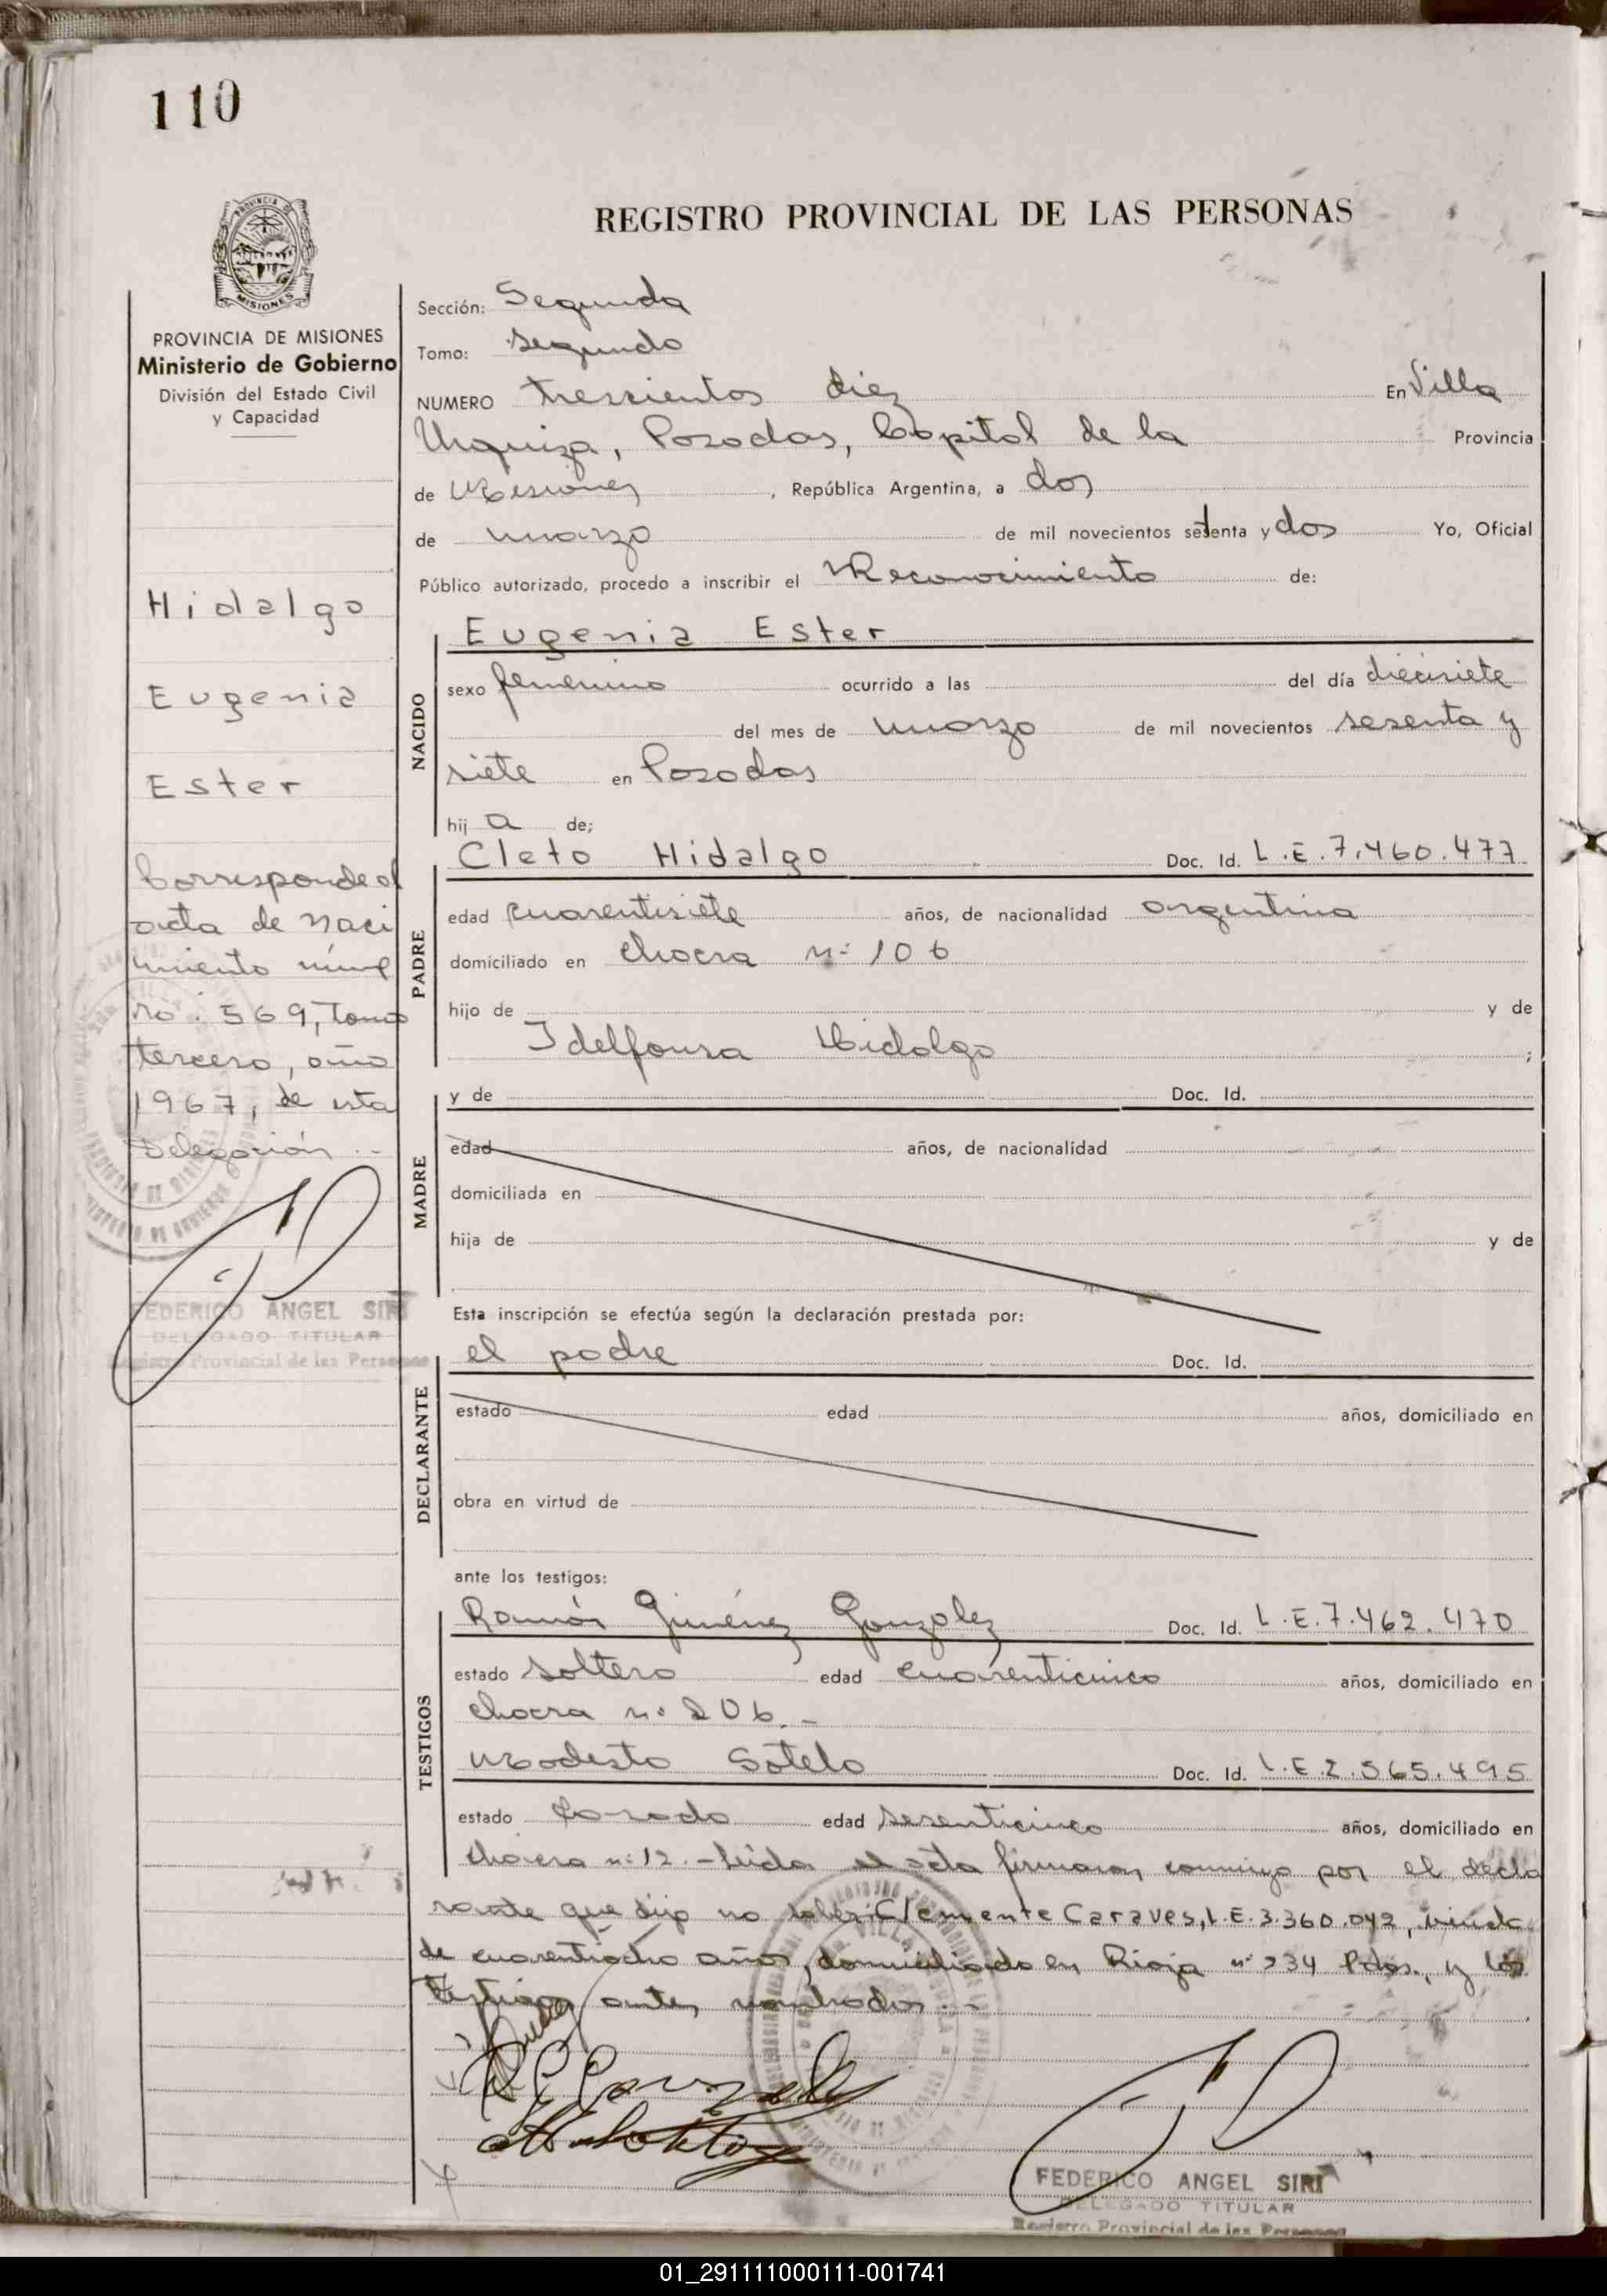 110
PROVINCIA DE MISIONES
REGISTRO PROVINCIAL DE LAS PERSONAS
PROVINCIA DE MISIONES
Ministerio de Gobierno
División del Estado Civil
y Capacidad
Hidalgo
Eugenia
Ester
Corresponde al
acta de naci
miento núme
ro: 569, Tomo
tercero, año
1967, de esta
Delegación.-
FEDERICO ANGEL SIRI
DELEGADO TITULAR
Registro Provincial de las Personas
Sección: Segunda
Tomo: Segundo
NUMERO trescientos diez En Villa
Urquiza, Posadas, Capital de la Provincia
de Misiones, República Argentina, a dos
de marzo de mil novecientos setenta y dos Yo, Oficial
Público autorizado, procedo a inscribir el Reconocimiento de:
NACIDO
Eugenia Ester
sexo femenino ocurrido a las del día diecisiete
del mes de marzo de mil novecientos sesenta y
siete en Posadas
hij a de;
PADRE
Cleto Hidalgo Doc. Id. L.E.7.460.477
edad cuarentisiete años, de nacionalidad argentina
domiciliado en chacra nº 106
hijo de y de
Idelfonsa Hidalgo ;
MADRE
y de Doc. Id.
edad años, de nacionalidad
domiciliada en
hija de y de
Esta inscripción se efectúa según la declaración prestada por:
DECLARANTE
el padre Doc. Id.
estado edad años, domiciliado en
obra en virtud de
ante los testigos:
TESTIGOS
Ramón Giménez Gonzalez Doc. Id. L.E.7.462.470
estado soltero edad cuarenticinco años, domiciliado en
chacra nº 206.-
Modesto Sotelo Doc. Id. L.E.2.565.495
estado casado edad sesenticinco años, domiciliado en
chacra nº 12.- Leída el acta firmaron conmigo por el decla
rante que dijo no saber: Clemente Caraves, L.E.3.360.042, viudo
de cuarentiocho años, domiciliado en Rioja nº 234 Pdas., y los
testigos antes nombrados.-
FEDERICO ANGEL SIRI
DELEGADO TITULAR
Registro Provincial de las Personas
01_291111000111-001741